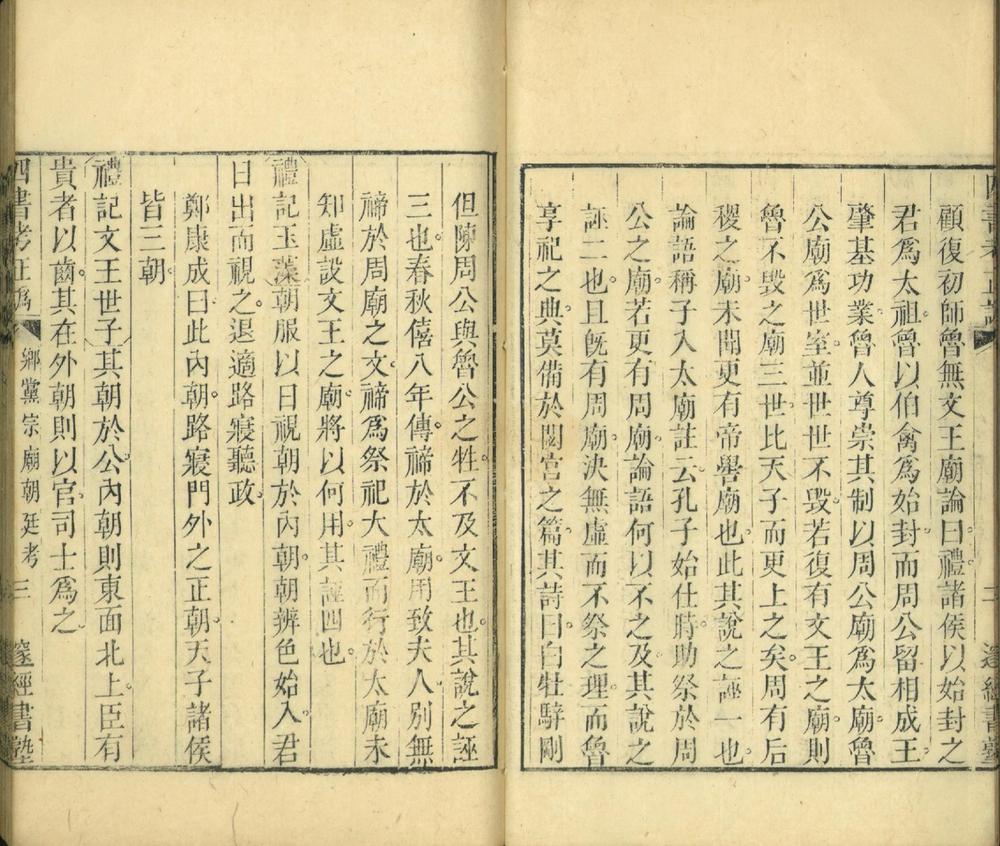 顧復初師魯無文王廟論曰禮諸侯以始封之
君爲太祖魯以伯禽爲始封而周公留相成王
肇基功業魯人尊崇其制以周公廟爲太廟魯
公廟爲世室並世世不毀若復有文王之廟則
魯不毀之廟三世比天子而更上之矣周有后
稷之廟未聞更有帝嚳廟也此其說之誣一也
論語稱子入太廟註云孔子始仕時助祭於周
公之廟若更有周廟論語何以不之及其說之
誣二也且既有周廟決無虛而不祭之理而魯
享祀之典莫備於閟宮之篇其詩曰白牡騂剛
但陳周公與魯公之牲不及文王也其說之誣
三也春秋僖八年傳禘於太廟用致夫人別無
禘於周廟之文禘爲祭祀大禮而行於太廟未
知虛設文王之廟將以何用其誣四也
禮記玉藻朝服以日視朝於內朝朝辨色始入君
日出而視之退適路寢聽政
鄭康成曰此內朝路寢門外之正朝天子諸侯
皆三朝
禮記文王世子其朝於公內朝則東面北上臣有
貴者以齒其在外朝則以官司士爲之
四書考正譌 鄉黨宗廟朝廷考 三 邃經書塾